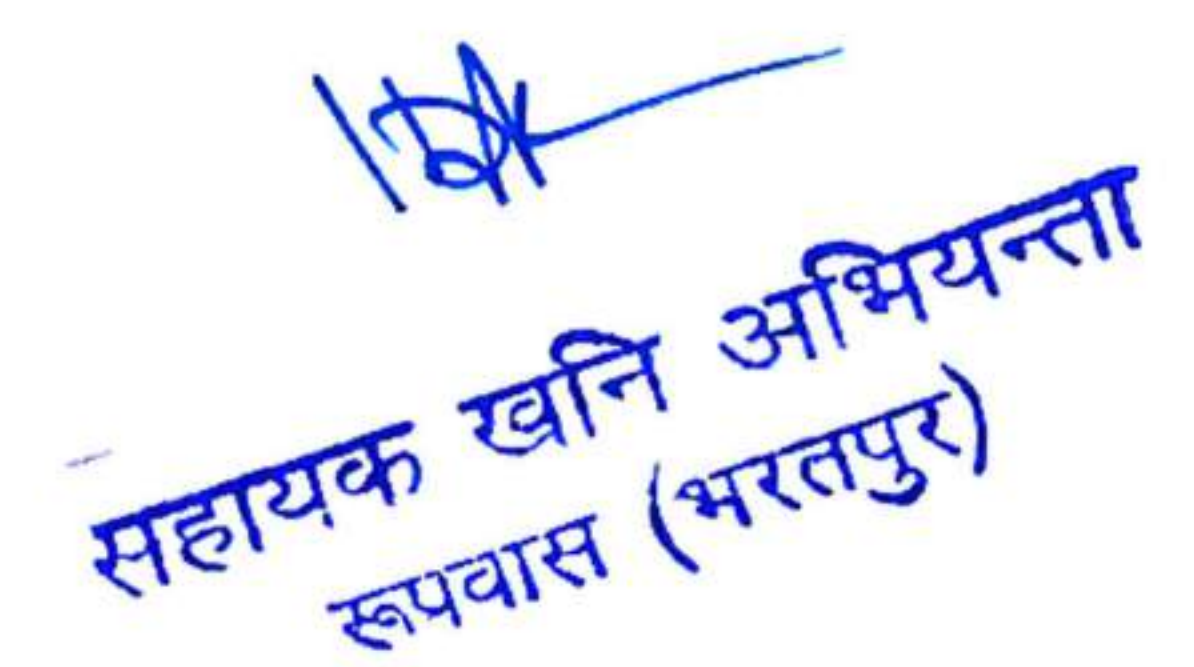 सहायक खनि अभियन्ता
रूपवास (भरतपुर)